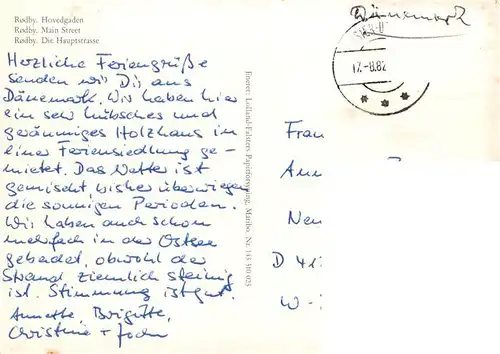 Rødby. Hovedgaden
Rødby. Main Street
Rødby. Die Hauptstrasse
Herzliche Feriengrüße
senden wir Dir aus
Dänemark. Wir haben hier
ein sehr hübsches und
geräumiges Holzhaus in
einer Feriensiedlung ge-
mietet. Das Wetter ist
gemischt bisher überwiegen
die sonnigen Perioden.
Wir haben auch schon
mehrfach in der Ostsee
gebadet, obwohl der
Strand ziemlich steinig
ist. Stimmung ist gut.
Annette, Brigitte,
Christine +
Eneret: Lolland-Falsters Papirforsyning, Maribo. Nr. 143 310 023
Dänemark
17.-8.82
Frau
Ann
Neu
D 41
W -